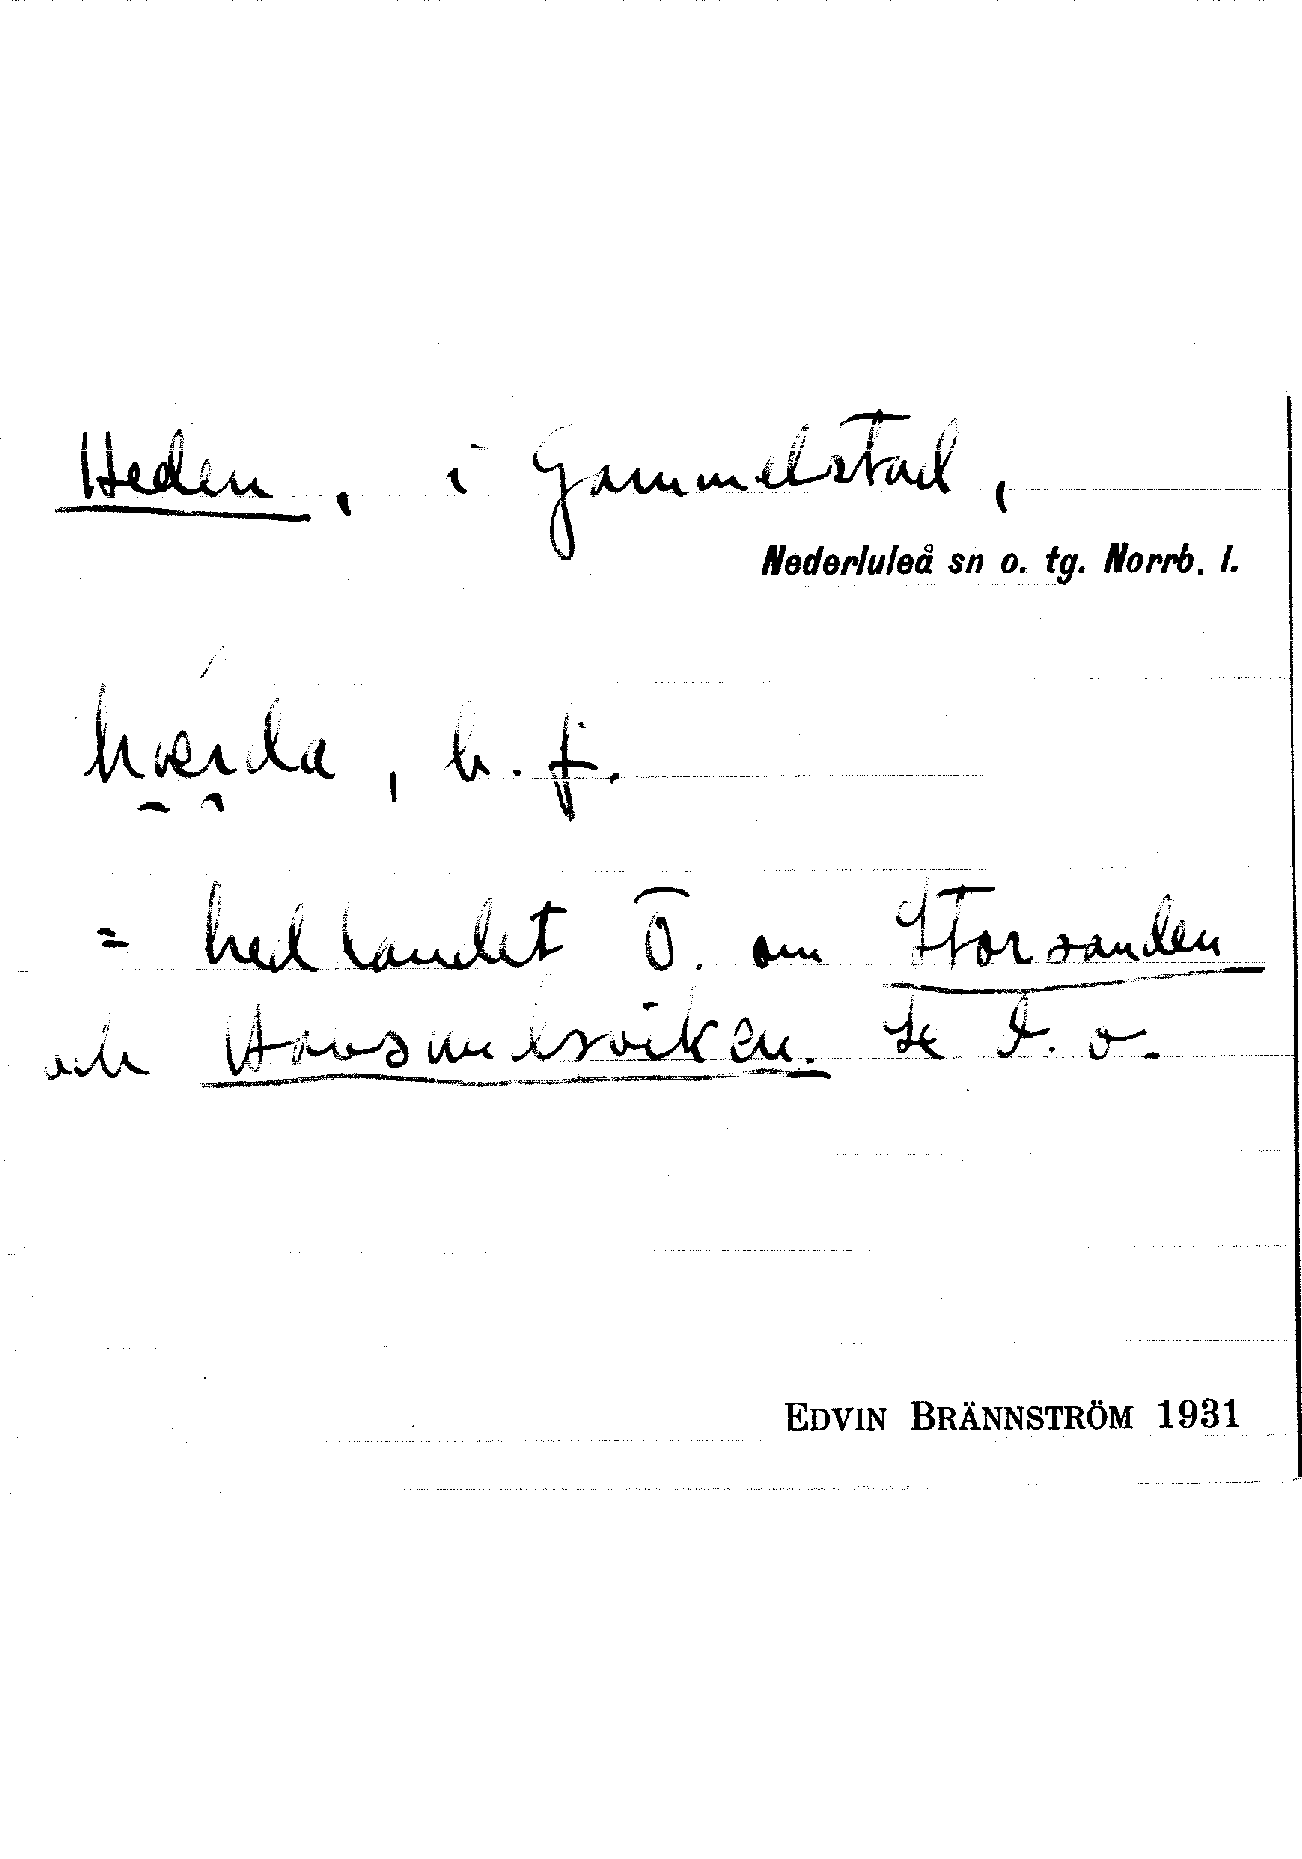 Heden, i Gammelstad,
Nederluleå sn o. tg. Norrb. l.
hærda, b. f.
= hedlandet Ö. om Storsanden
och Se d. o.
EDVIN BRÄNNSTRÖM 1931